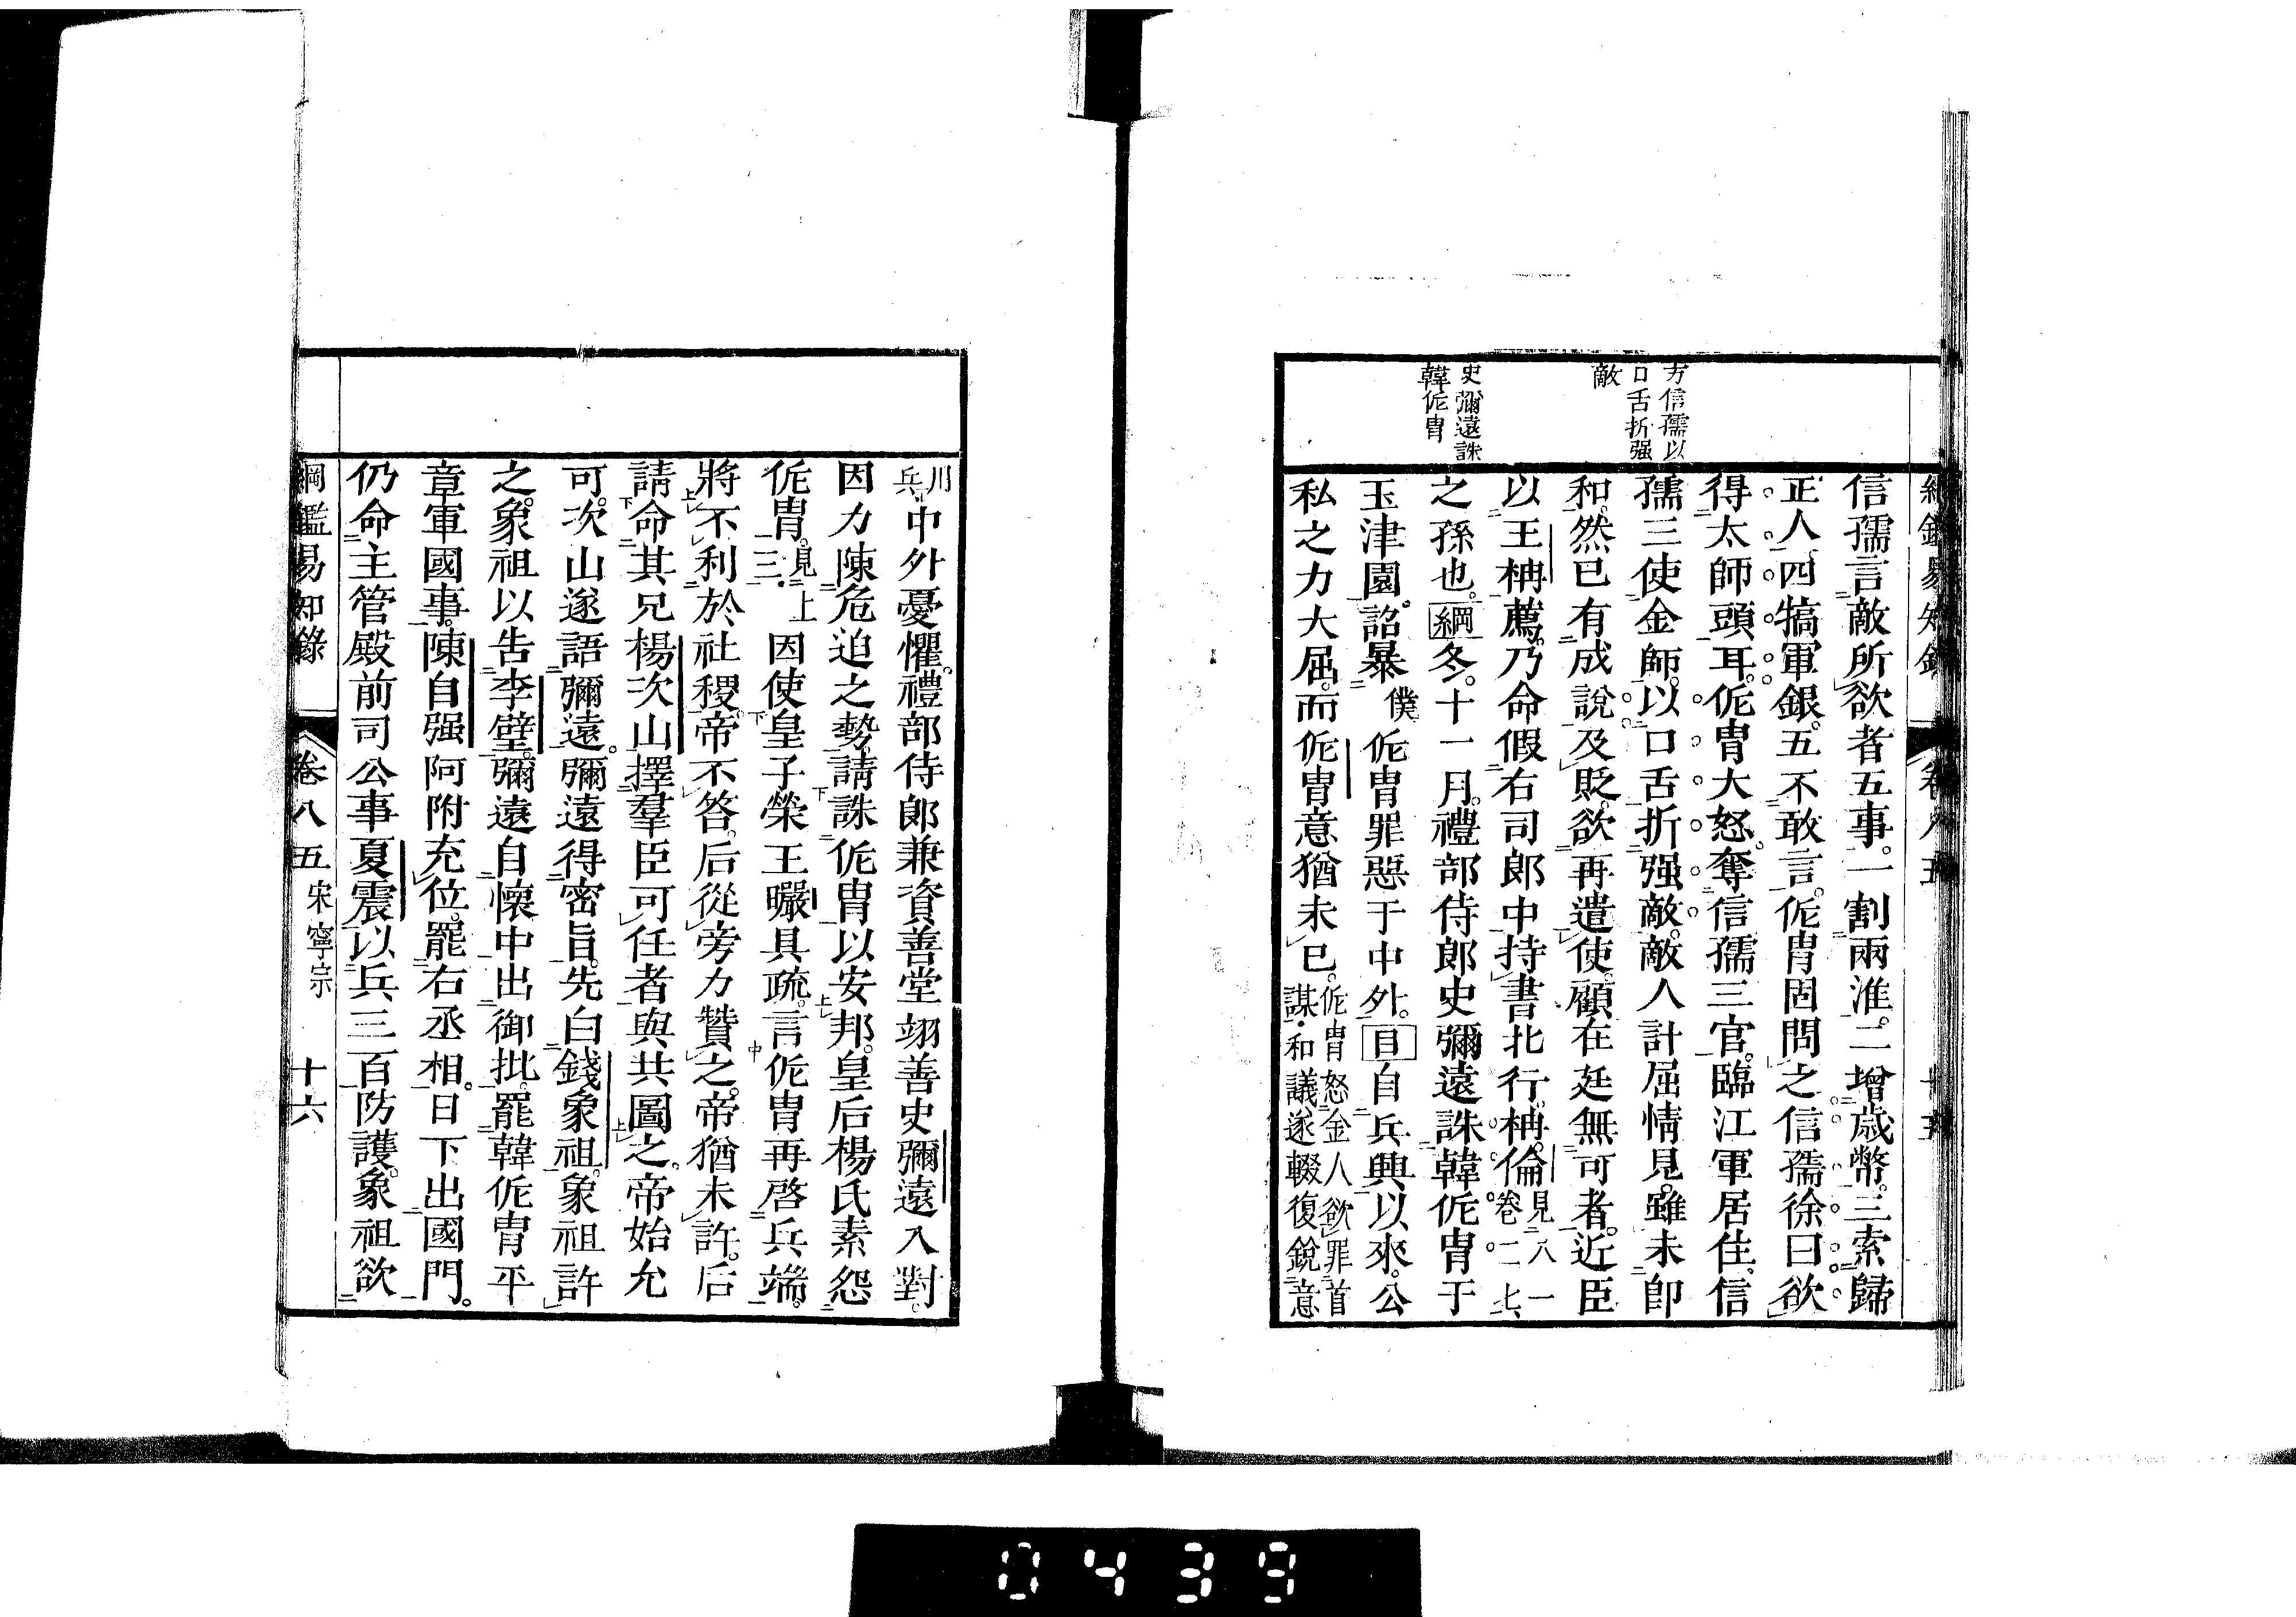 方信孺以
口舌折强
敵
史彌遠誅
韓侂冑
信孺言敵所欲者五事。一割兩淮。二增歲幣。三索歸
正人。四犒軍銀。五不敢言。侂冑固問之。信孺徐曰。欲
得太師頭耳。侂冑大怒。奪信孺三官。臨江軍居住。信
孺三使金師。以口舌折强敵。敵人計屈情見。雖未卽
和。然已有成說。及貶。欲再遣使。顧在廷無可者。近臣
以王柟薦。乃命假右司郎中。持書北行。柟。倫見八一卷二七、
之孫也。綱冬。十一月。禮部侍郎史彌遠誅韓侂冑于
玉津園。詔暴僕侂冑罪惡于中外。目自兵興以來。公
私之力大屈。而侂冑意猶未已。侂冑怒金人欲罪首謀・和議遂輟復銳意
川兵、中外憂懼。禮部侍郎兼資善堂翊善史彌遠入對。
因力陳危迫之勢。請誅侂冑以安邦。皇后楊氏素怨
侂冑。見上三・因使皇子榮王曮具疏。言侂冑再啓兵端。
將不利於社稷。帝不答。后從旁力贊之。帝猶未許。后
請命其兄楊次山擇羣臣可任者與共圖之。帝始允
可。次山遂語彌遠。彌遠得密旨。先白錢象祖。象祖許
之。象祖以告李壁。彌遠自懷中出御批。罷韓侂冑平
章軍國事。陳自强阿附充位。罷右丞相。日下出國門。
仍命主管殿前司公事夏震以兵三百防護。象祖欲
綱鑑易知錄 卷八五 宋寧宗 十六
0439